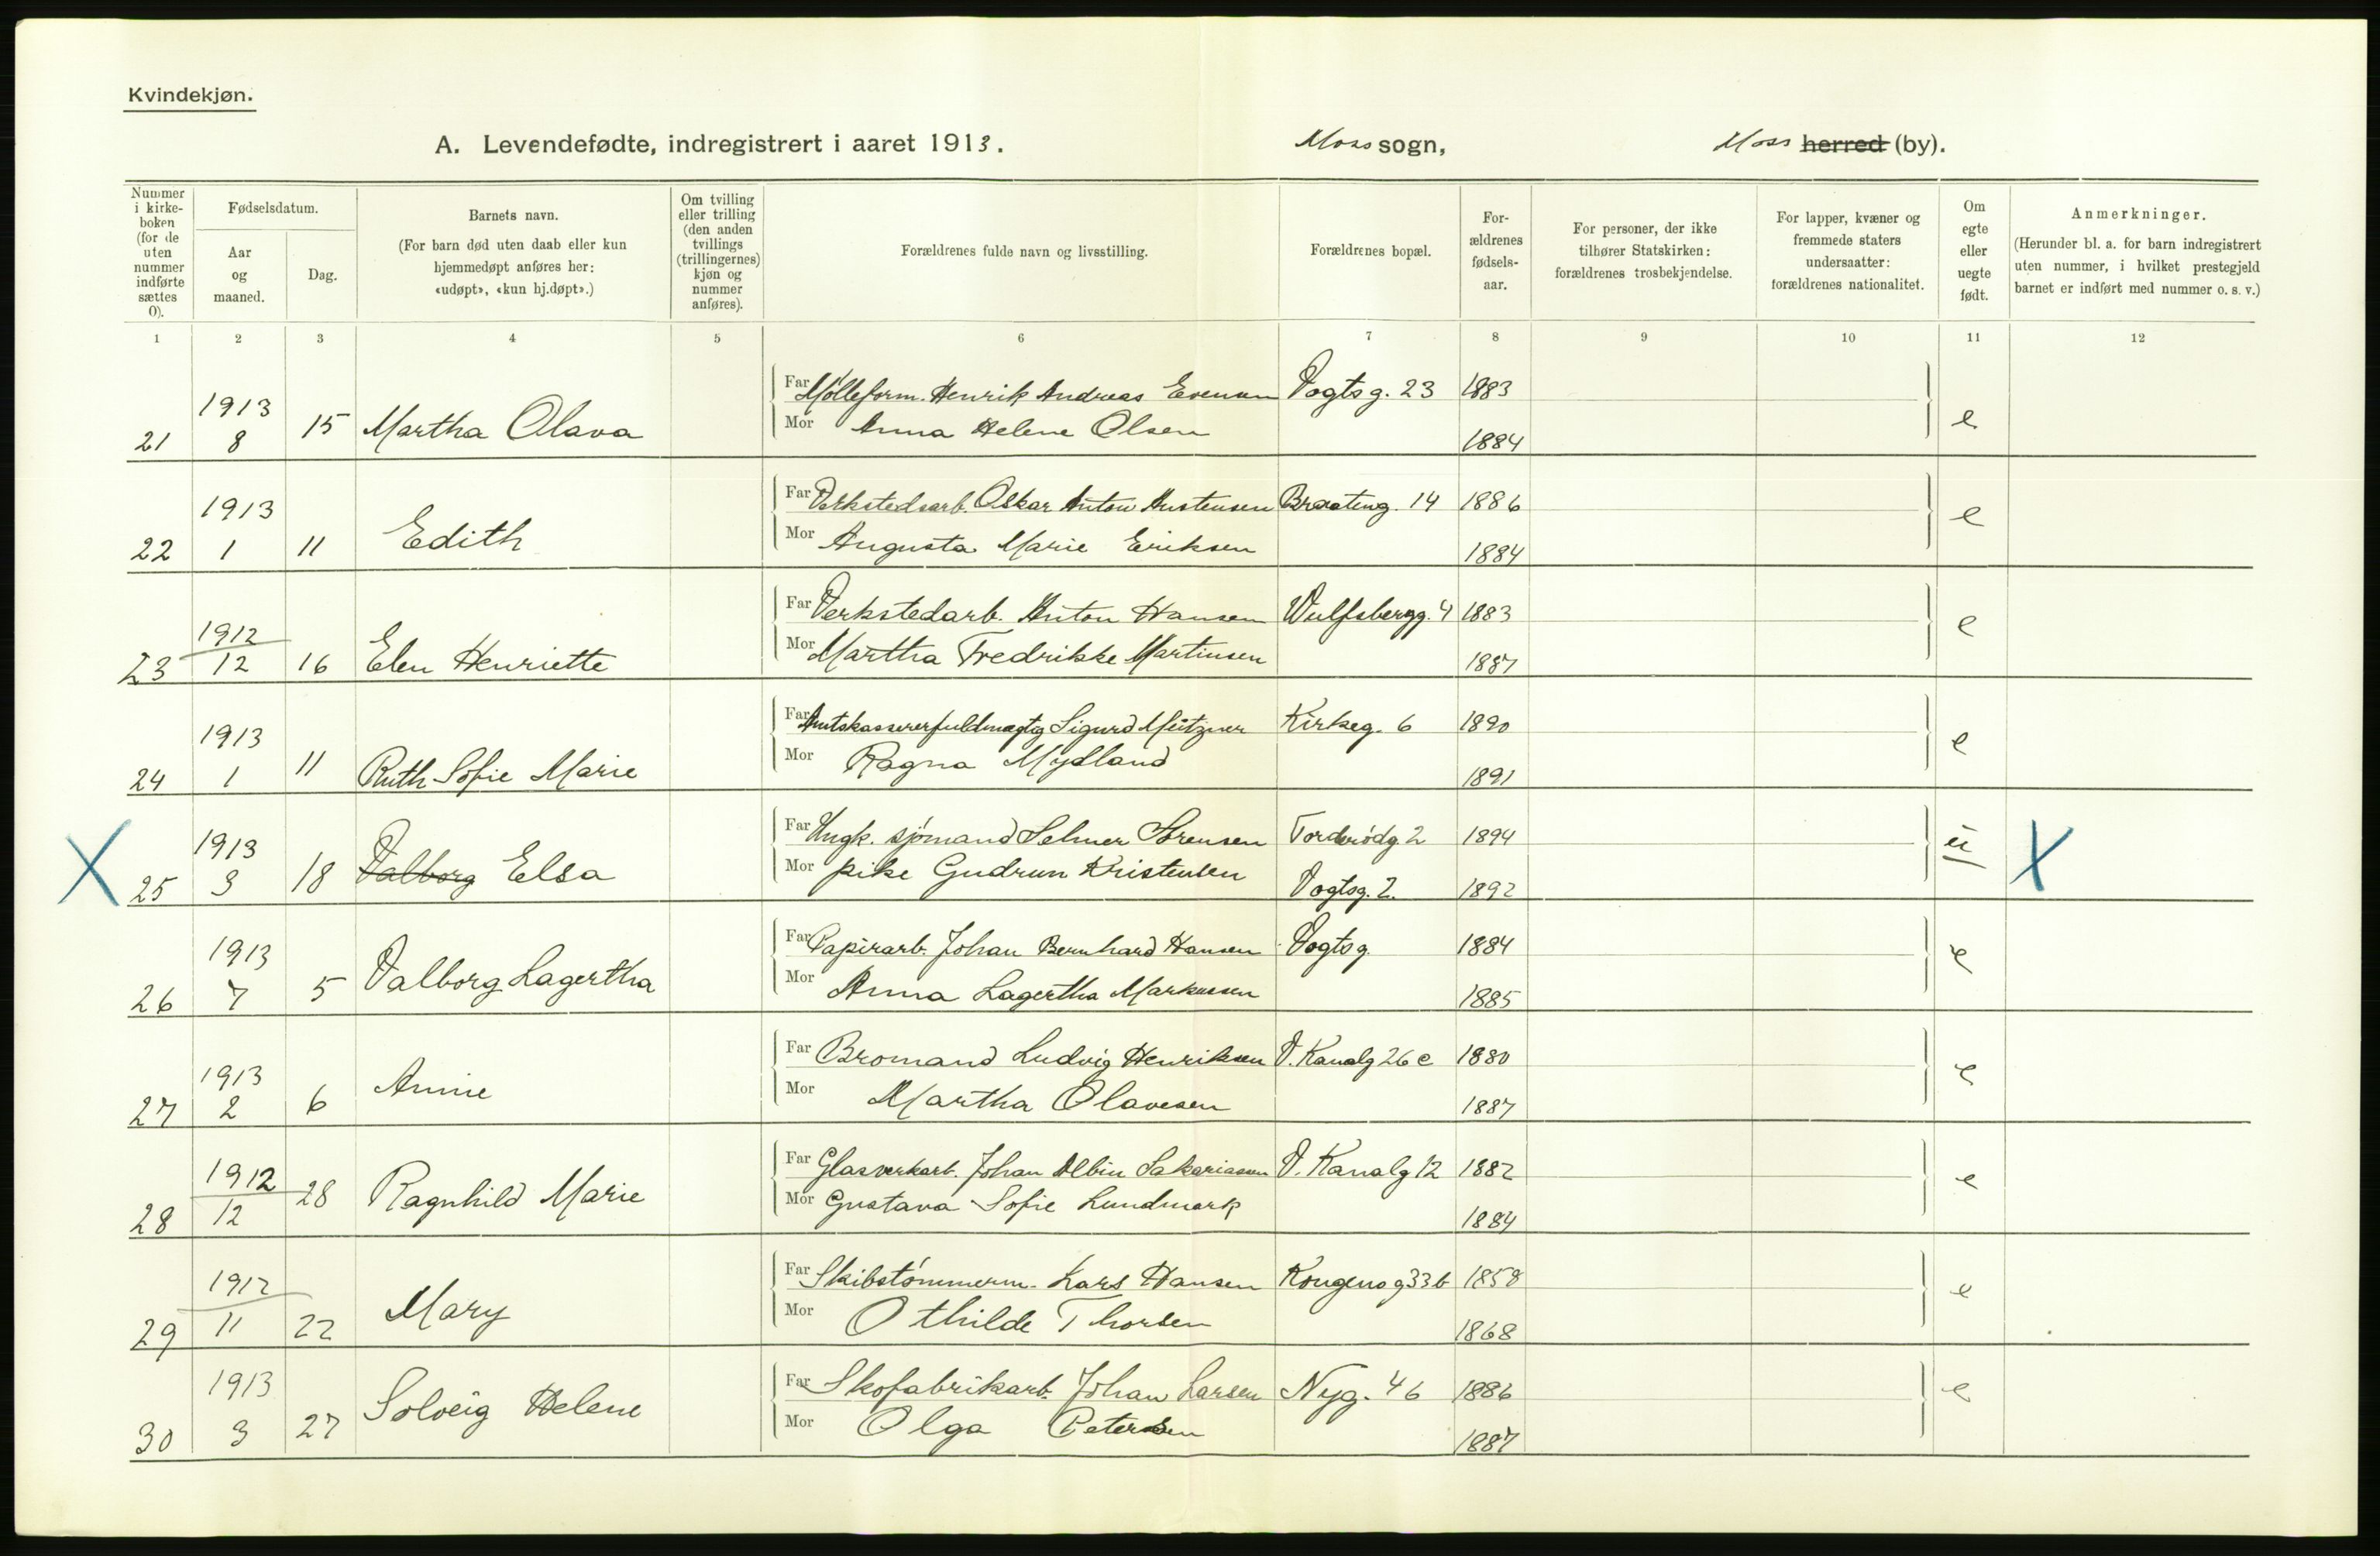 Kvindekjøn.
A. Levendefødte, indregistrert i aaret 1913.
Moss sogn,
Moss herred (by).
Nummer
i kirke-
boken
(for de
uten
nummer
indførte
sættes
0).
Fødselsdatum.
Aar
og
maaned.
Dag.
Barnets navn.
(For barn død uten daab eller kun
hjemmedøpt anføres her:
«udøpt», «kun hj.døpt».)
Om tvilling
eller trilling
(den anden
tvillings
(trillingernes)
kjøn og
nummer
anføres).
Forældrenes fulde navn og livsstilling.
Forældrenes bopæl.
For-
ældrenes
fødsels-
aar.
For personer, der ikke
tilhører Statskirken:
forældrenes trosbekjendelse.
For lapper, kvæner og
fremmede staters
undersaatter:
forældrenes nationalitet.
Om
egte
eller
uegte
født.
Anmerkninger.
(Herunder bl. a. for barn indregistrert
uten nummer, i hvilket prestegjeld
barnet er indført med nummer o. s. v.)
1 2 3 4 5 6 7 8 9 10 11 12
Far Mølleform. Henrik Andreas Evensen Vogtsg. 23 1883
1913
21 8 15 Martha Olava Mor Anna Helene Olsen 1884 e
Far Verkstedsarb. Oskar Anton Austensen Braateng. 14 1886
1913
22 1 11 Edith Mor Augusta Marie Eriksen 1884 e
Far Verkstedarb. Anton Hansen Wulfsbergg. 4 1883
1912
23 12 16 Elen Henriette Mor Martha Fredrikke Martinsen 1887 e
Far Amtskassererfuldmægtig Sigurd Mützner Kirkeg. 6 1890
1913
24 1 11 Ruth Sofie Marie Mor Ragna Mydland 1891 e
Far Ungk. sjømand Selmer Sørensen Torderødg. 2 1894
1913
X 25 3 18 Valborg Elsa Mor pike Gudrun Kristensen Vogtsg. 2. 1892 u X
Far Papirarb. Johan Bernhard Hansen Vogtsg. 1884
1913
26 7 5 Valborg Lagertha Mor Anna Lagertha Markussen 1885 e
Far Bromand Ludvig Henriksen V. Kanalg 26 c 1880
1913
27 2 6 Annie Mor Martha Olavesen 1887 e
Far Glasverkarb. Johan Albin Sakariassen V. Kanalg 12 1882
1912
28 12 28 Ragnhild Marie Mor Gustava Sofie Lundmark 1884 e
Far Skibstømmerm. Lars Hansen Kongensg 33 b 1858
1912
29 11 22 Mary Mor Othilde Thorsen 1868 e
Far Skofabrikarb. Johan Larsen Nyg. 46 1886
1913
30 3 27 Solveig Helene Mor Olga Petersen 1887 e